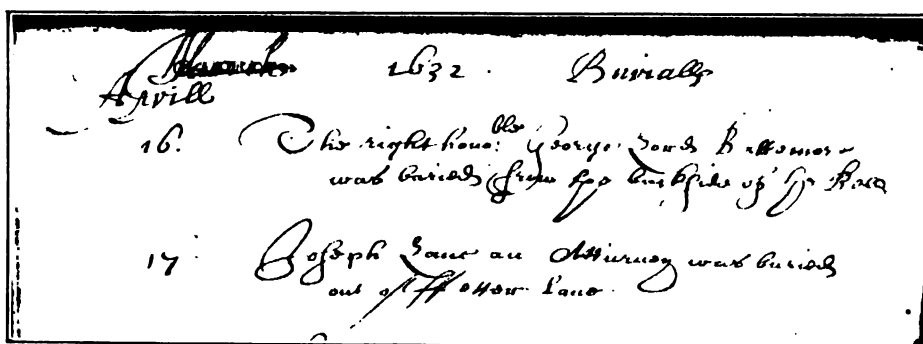 March 1632. Burialls
Aprill
16. The right hono:ble George Lord Baltemore
was buried from the backside of the
17 Joseph Lane an Atturney was buried
out of ffetter Lane.